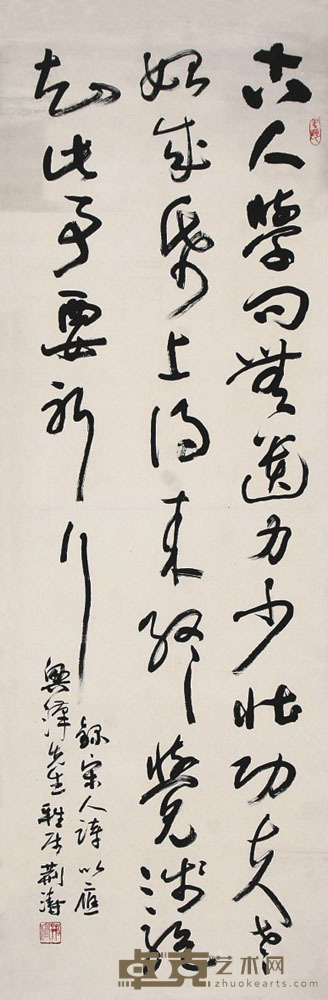 古人學問無遺力少壯功夫老
始成紙上得來終覺淺絕
知此事要躬行
錄宋人詩以應
興澤先生雅屬荊濤
卓克艺术网
www.zhuokearts.com